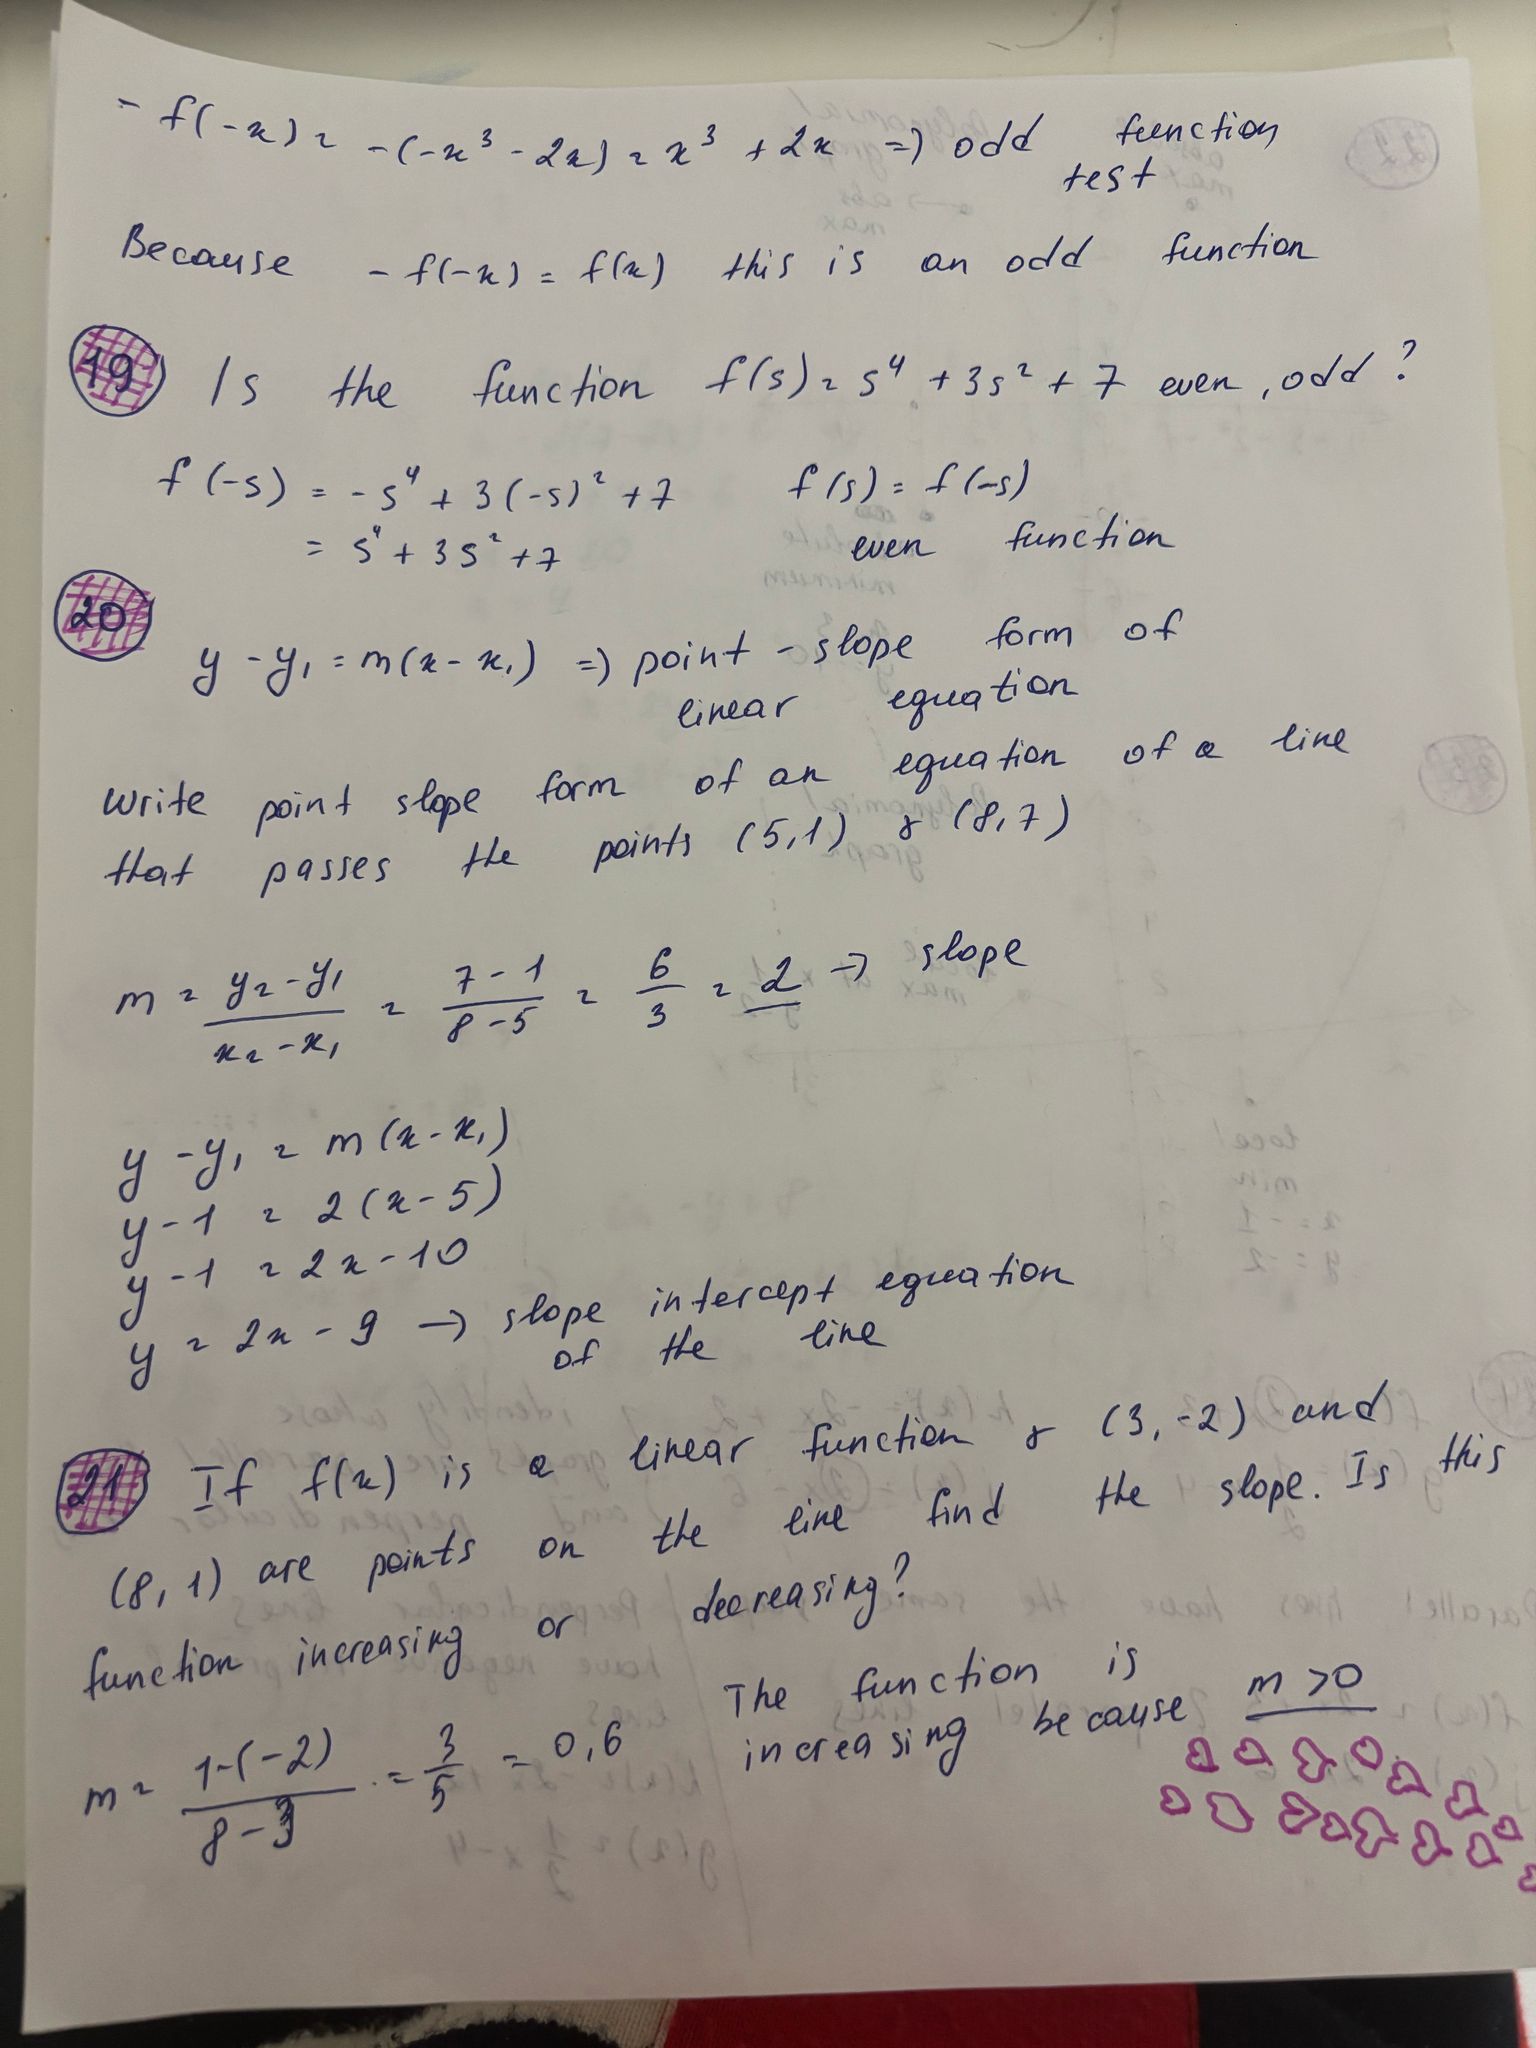 - f(-x) = -(-x³ - 2x) = x³ + 2x => odd function
test
Because - f(-x) = f(x) this is an odd function
19 Is the function f(s) = s⁴ + 3s² + 7 even, odd?
f(-s) = -s⁴ + 3(-s)² + 7 f(s) = f(-s)
= s⁴ + 3s² + 7 even function
20
y - y₁ = m(x - x₁) => point - slope form of
linear equation
Write point slope form of an equation of a line
that passes the points (5,1) & (8,7)
m = y₂ - y₁ / x₂ - x₁ = 7 - 1 / 8 - 5 = 6/3 = 2 → slope
y - y₁ = m(x - x₁)
y - 1 = 2(x - 5)
y - 1 = 2x - 10
y = 2x - 9 → slope intercept equation
of the line
21 If f(x) is a linear function & (3, -2) and
(8, 1) are points on the line find the slope. Is this
function increasing or decreasing?
The function is
increasing because m > 0
m = 1-(-2) / 8 - 3 = 3/5 = 0,6